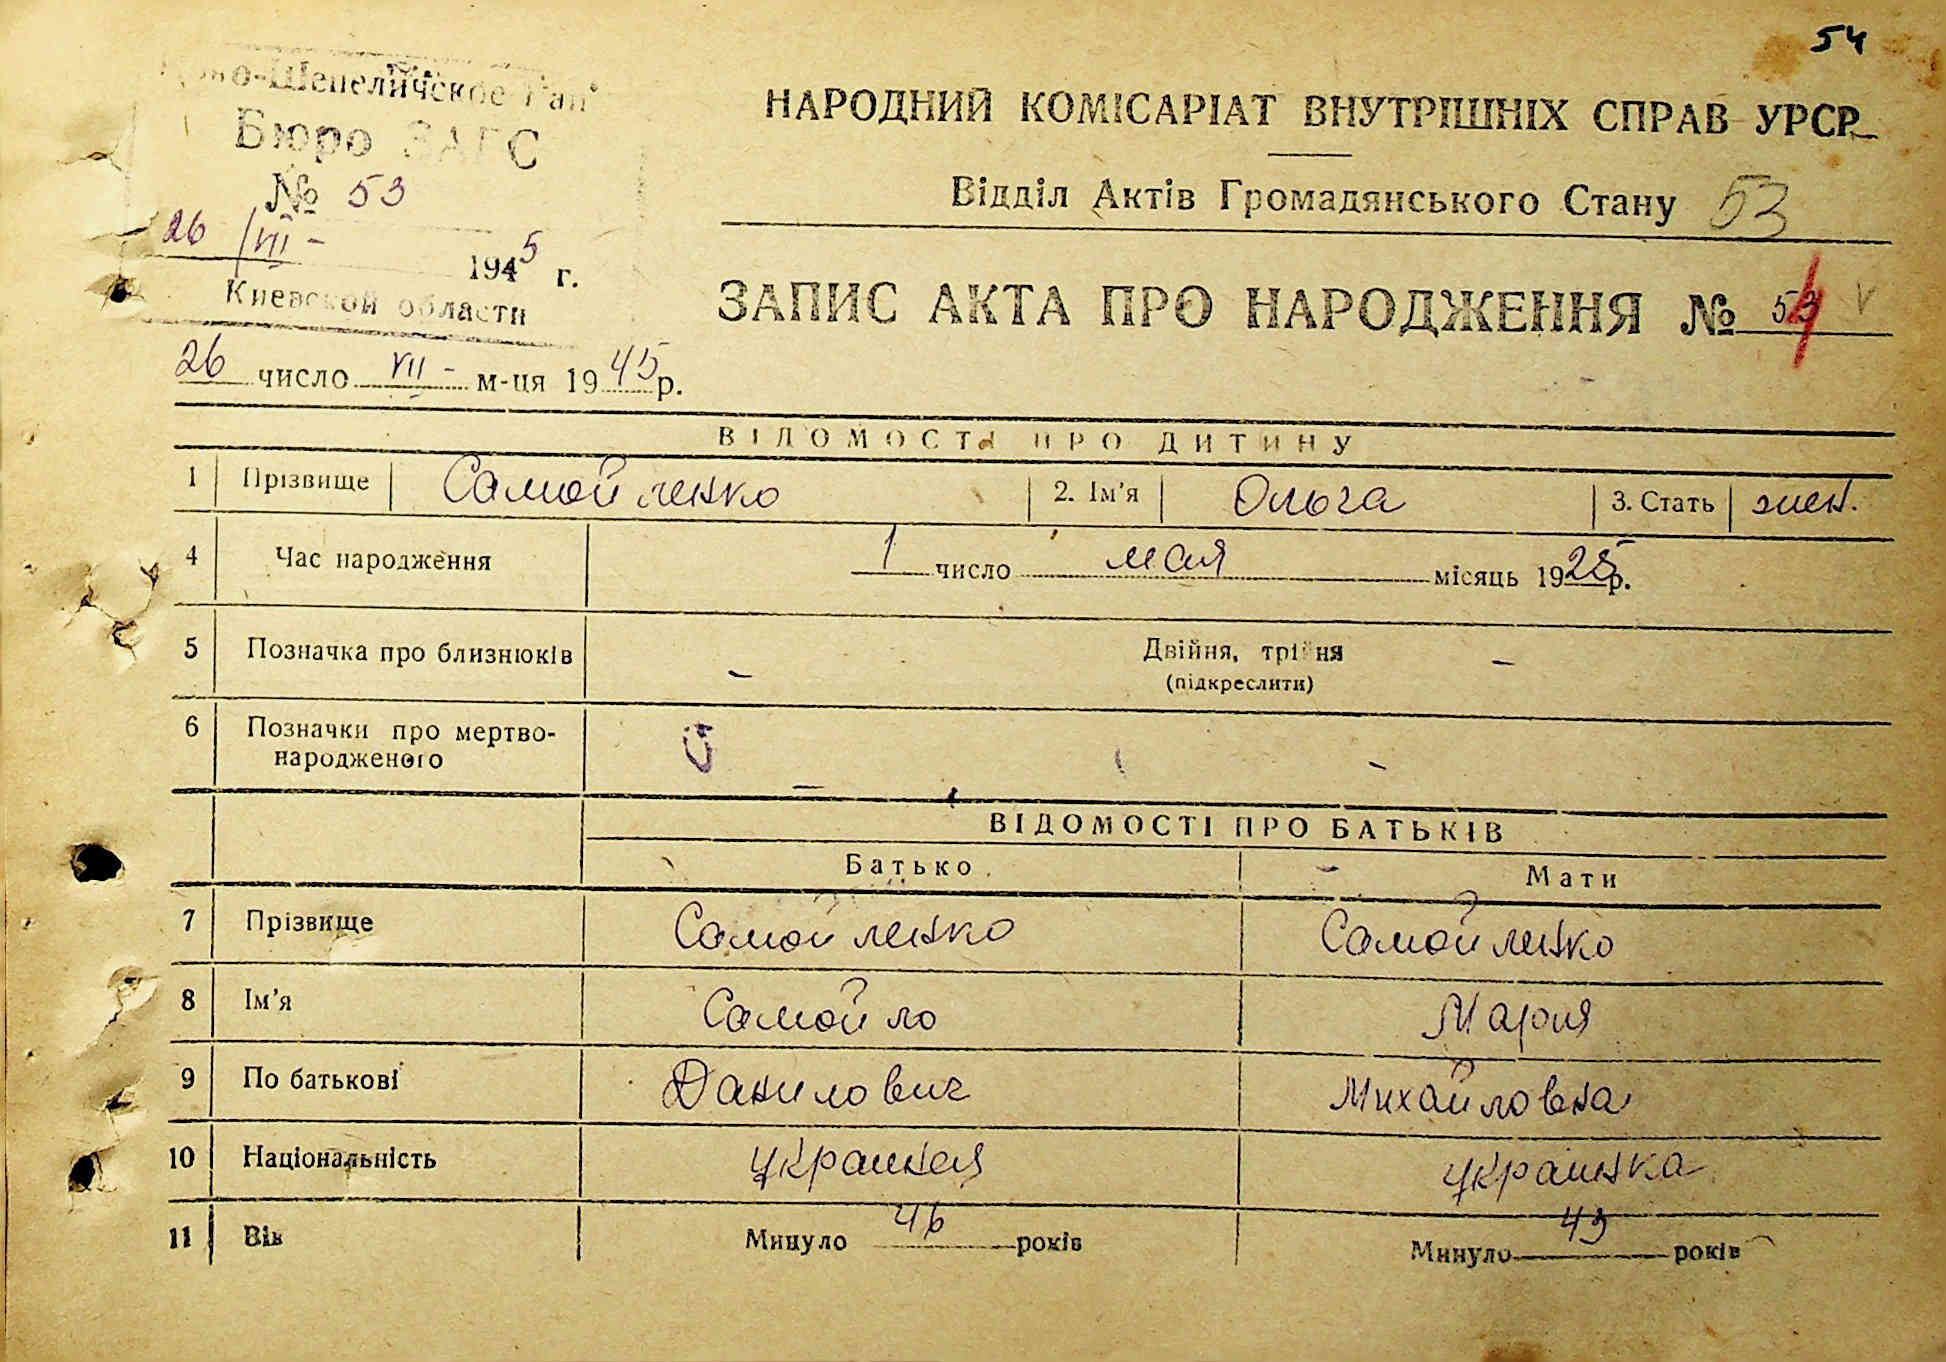 54
Ново-Шепеличское Рай
Бюро ЗАГС
№ 53
26/VII - 1945 г.
Киевской области
НАРОДНИЙ КОМІСАРІАТ ВНУТРІШНІХ СПРАВ УРСР
Відділ Актів Громадянського Стану 53
ЗАПИС АКТА ПРО НАРОДЖЕННЯ № 53 V
26 число VII - м-ця 1945 р.
ВІДОМОСТІ ПРО ДИТИНУ
1 Прізвище Самойленко 2. Ім'я Ольга 3. Стать жен.
4 Час народження 1 число мая місяць 1925 р.
5 Позначка про близнюків - Двійня, трійня -
(підкреслити)
6 Позначки про мертво-
народженого - -
ВІДОМОСТІ ПРО БАТЬКІВ
Батько Мати
7 Прізвище Самойленко Самойленко
8 Ім'я Самойло Мария
9 По батькові Данилович Михайловна
10 Національність українец украинка
11 Вік Минуло 46 років Минуло 43 років